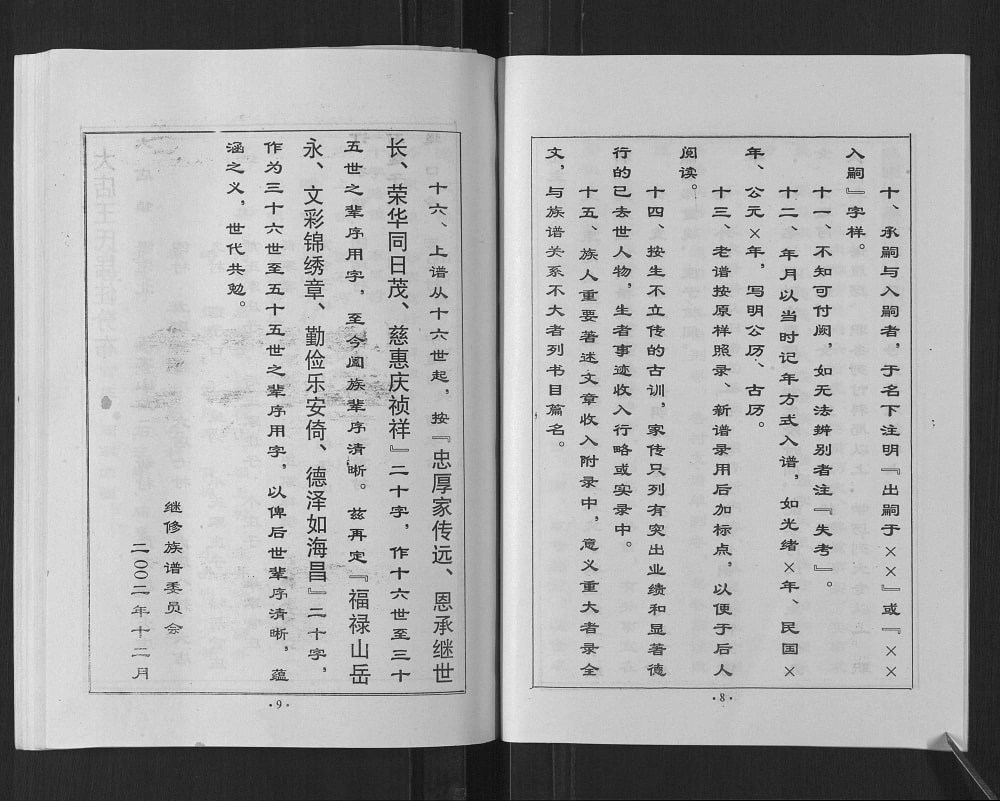 十、承嗣与入嗣者，于名下注明『出嗣于××』或『××
入嗣』字样。
十一、不知可付阙，如无法辨别者注『失考』。
十二、年月以当时记年方式入谱，如光绪×年、民国×
年、公元×年，写明公历、古历。
十三、老谱按原样照录、新谱录用后加标点，以便于后人
阅读。
十四、按生不立传的古训，家传只列有突出业绩和显著德
行的已去世人物，生者事迹收入行略或实录中。
十五、族人重要著述文章收入附录中，意义重大者录全
文，与族谱关系不大者列书目篇名。
·8·
十六、上谱从十六世起，按『忠厚家传远、恩承继世
长、荣华同日茂、慈惠庆祯祥』二十字，作十六世至三十
五世之辈序用字，至今阖族辈序清晰。兹再定『福禄山岳
永、文彩锦绣章、勤俭乐安倚、德泽如海昌』二十字，
作为三十六世至五十五世之辈序用字，以俾后世辈序清晰，蕴
涵之义，世代共勉。
继修族谱委员会
二〇〇二年十二月
·9·